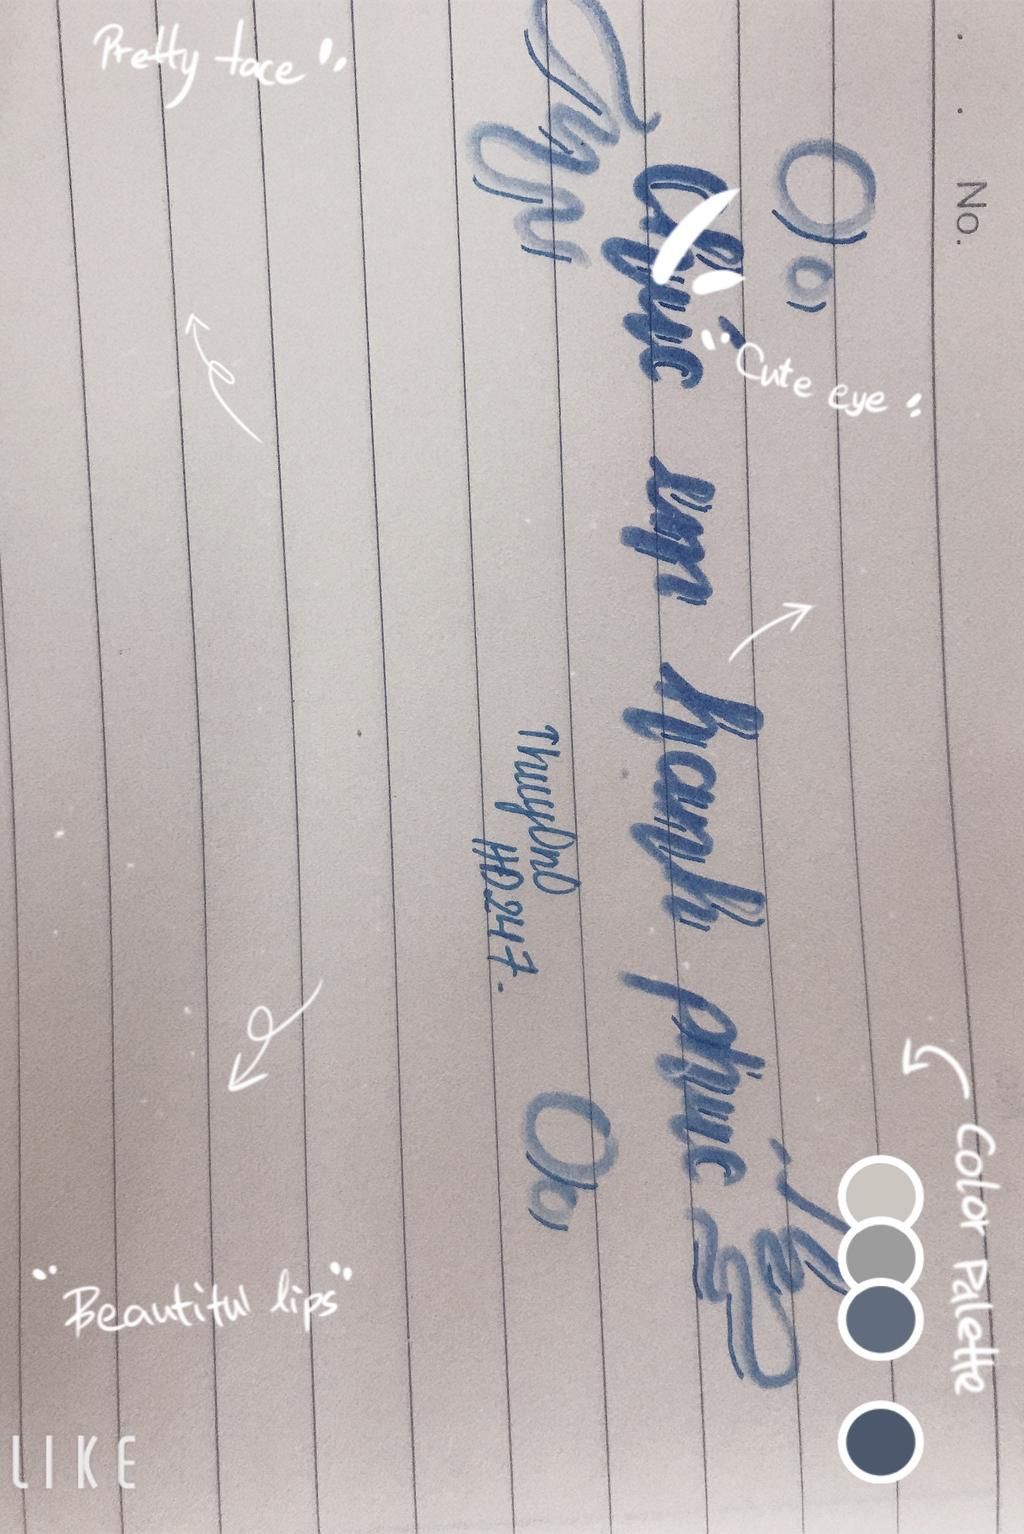 Pretty face
No.
Chúc em hanh phúc
Cute eye
HD247.
Color Palette
Beautiful lips
LIKE